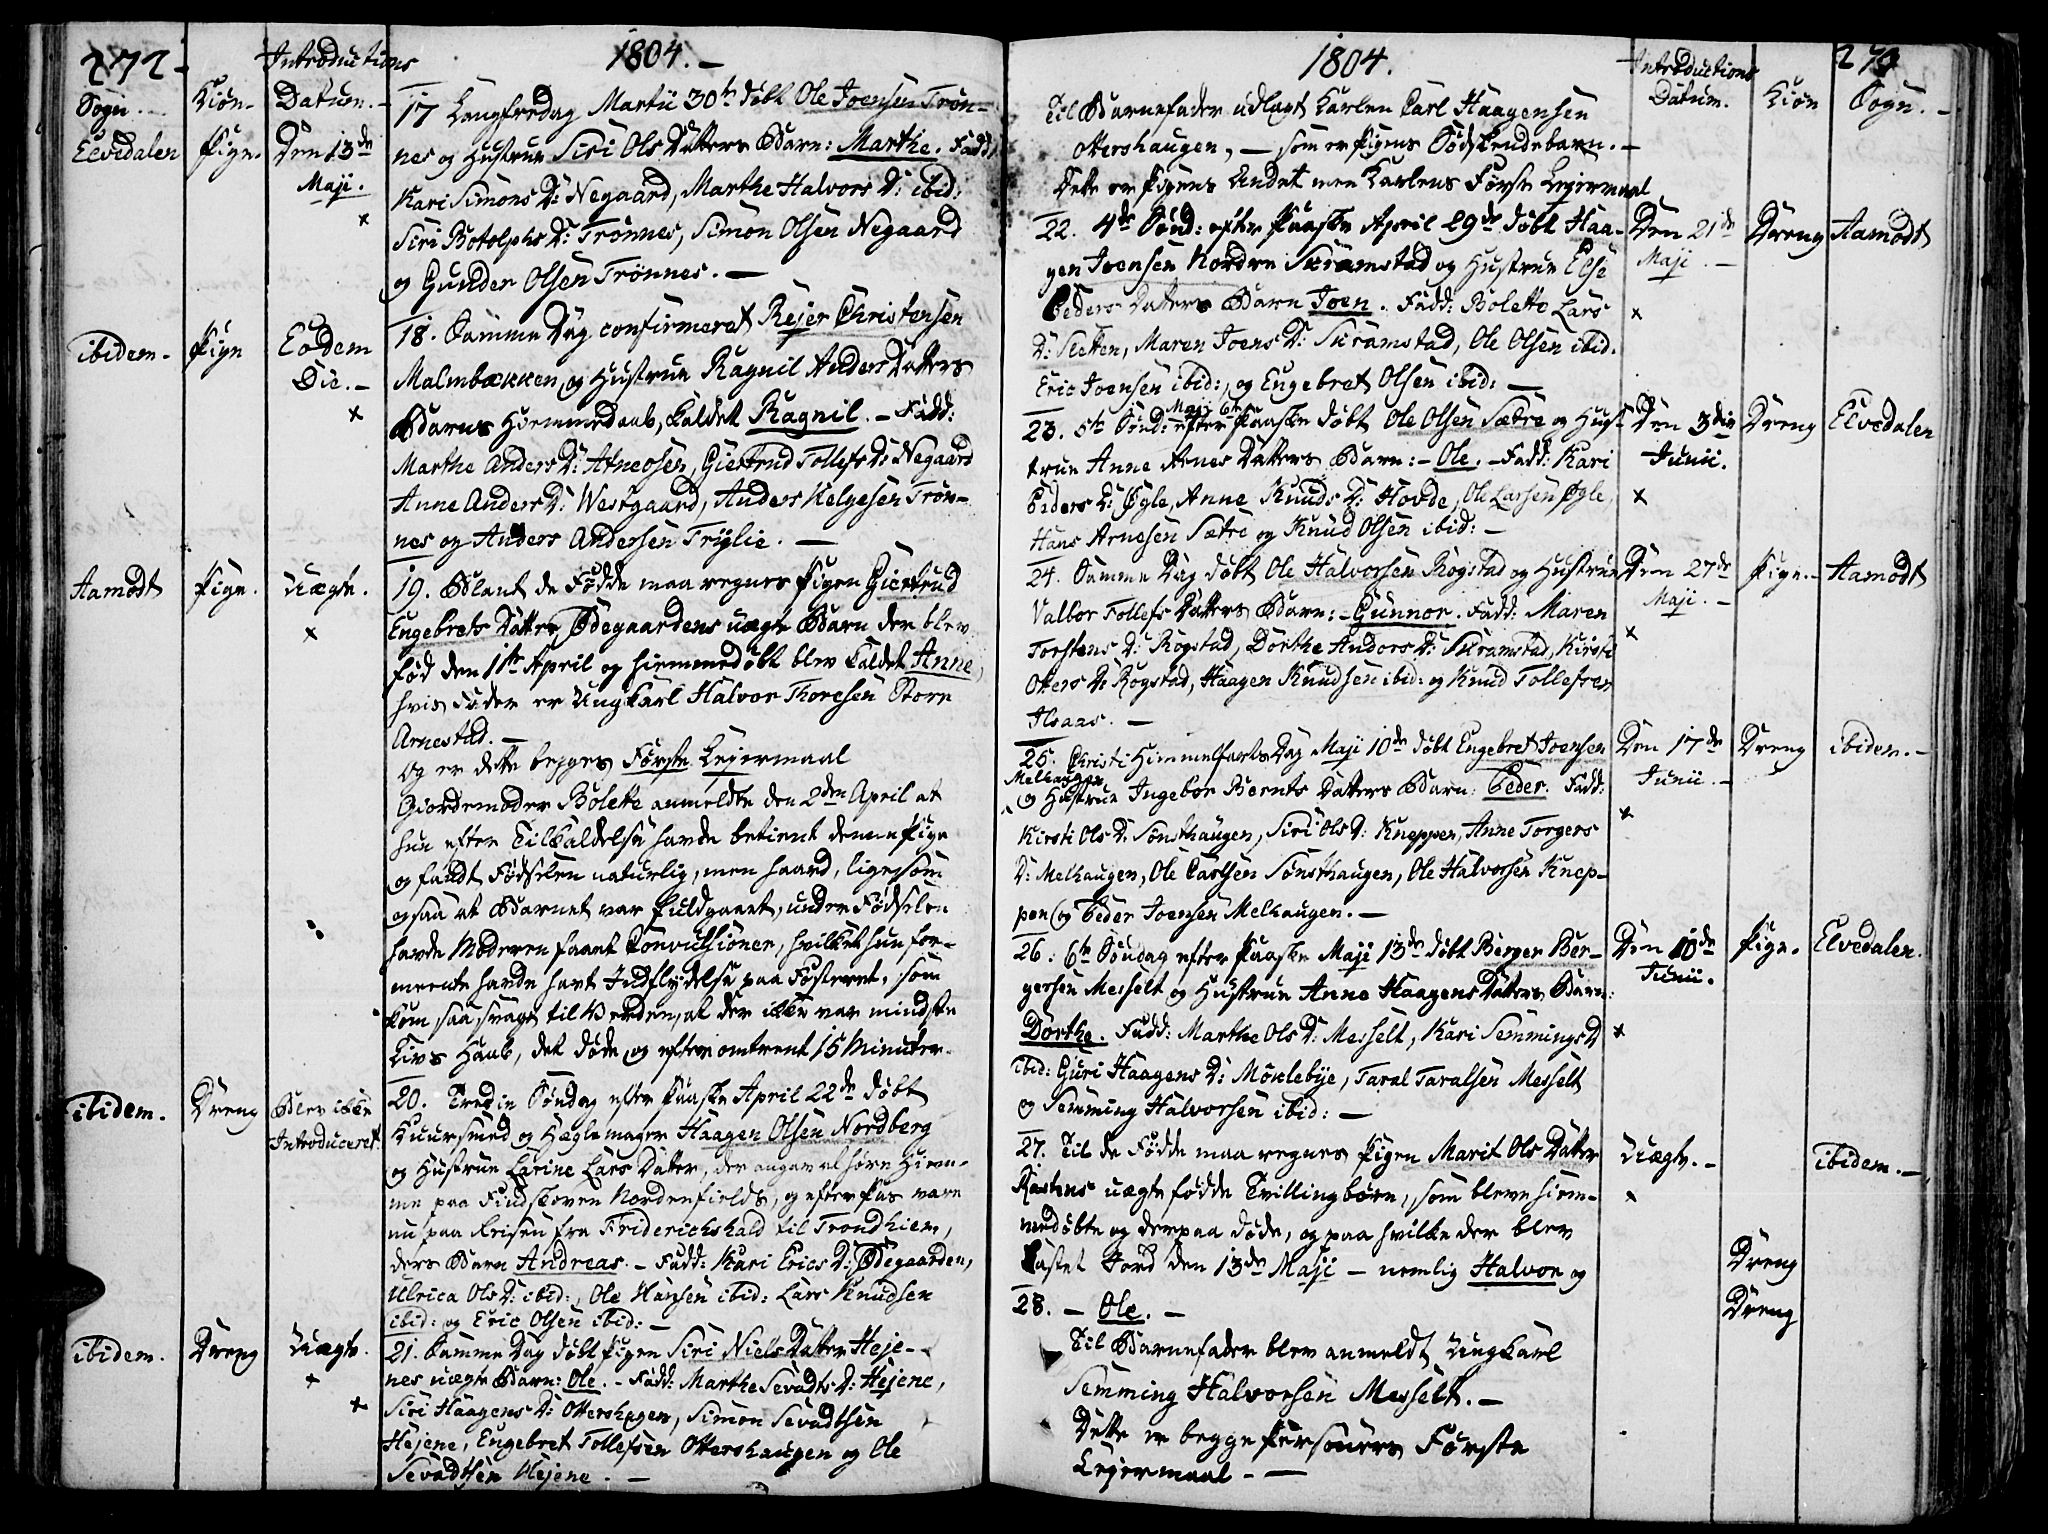 272.
Introductions
1804.
Sogn. Kiön. Datum.
Elvedalen Pige. Den 13de Maji.
17 Langfredag Martii 30te döbt Ole Joensen Trön-
nes og Hustrue Siri Ols Datters Barn: Marthe. Fadd:
Kari Simons D: Negaard, Marthe Halvors D: ibid:
Siri Botolphs D: Trönnes, Simon Olsen Negaard
og Gunder Olsen Trönnes. —
ibidem. Pige Eodem Die. —
18. Samme Dag confirmeret Rejer Christensen
Malmbækken og Hustrue Ragnil Anders Datters
Barns Hiemmedaab, kaldet Ragnil. — Fadd:
Marthe Anders D: Atneosen, Giertrud Tollefs D: Negaard
Anne Anders D: Westgaard, Anders Helgesen Trön-
nes og Anders Andersen Trylie. —
Aamodt Pige. Uægte.
19. Blant de Fødde maa regnes Pigen Giertrud
Engebrets Datter Ødegaardens uægte Barn der blev
föd den 1ste April og hiemmedöbt blev kaldet Anne,
hvis Fader er Ungkarl Halvor Thoresen Store
Arnestad. —
Og er dette begges Förste Lejermaal
Giordemoder Bolette anmeldte den 2den April at
hun efter Tilkaldelse havde betient denne Pige
og fandt Födselen naturlig, men haard, ligesom
og saa at Barnet var fuldgaaet, under Födselen
havde Moderen faaet Convulsioner, hvilket hun for-
meente havde havt Indflydelse paa Fosteret, som
kom saa svagt til Verden, at der ikke var mindste
Livs Haab, det döde og efter omtrent 15 Minuter.
ibidem. Dreng Blev ikke Introduceret
20. Tredie Söndag efter Paaske April 22de döbt
Kuursmed og Hæglemager Haagen Olsen Nordberg
og Hustrue Larine Lars Datter, der angav at høre Hiem-
me paa Findskoven Nordenfields, og efter Pas vare
nu paa Reisen fra Friderichshald til Trondhiem,
deres Barn Andreas. — Fadd: Kari Erics D: Ödegaarden,
Ulrica Ols D: ibid:, Ole Hansen ibid: Lars Knudsen
ibid: og Eric Olsen ibid: —
ibidem. Dreng Uægte.
21. Samme Dag döbt Pigen Siri Niels Datter Heje-
nes uægte Barn: Ole. — Fadd: Marthe Sevadts D: Hejene,
Siri Haagens D: Ottershagen, Simon Sevadtsen
Hejene, Engebret Tollefsen Ottershaugen og Ole
Sevadtsen Hejene. —
1804.
Introductions Datum. Kiön Sogn. —
Til Barnefader udlagt Karlen Carl Haagensen
Ottershaugen, — som er Pigens Sødskendebarn. —
Dette er Pigens Andet men Karlens Første Lejermaal
22. 4de Sönd: efter Paaske April 29de döbt Haa-
gen Joensen Nordre Skramstad og Hustrue Else
Peders Datters Barn Joen. Fadd: Bolette Lars
D: Sletten, Maren Joens D: Skramstad, Ole Olsen ibid.
Eric Joensen ibid:, og Engebret Olsen ibid: —
Den 21de Maji. — Dreng Aamodt
23. 5te Sönd: efter Paaske Maji 6te döbt Ole Olsen Sætre og Hus-
true Anne Arnes Datters Barn: — Ole. — Fadd: Kari
Peders D: Øgle, Anne Knuds D: Hovde, Ole Larsen Øgle,
Hans Arnesen Sætre og Knud Olsen ibid: —
Den 3die Junii. Dreng Elvedalen
24. Samme Dag döbt Ole Halvorsen Rogstad og Hustrue
Valbor Tollefs Datters Barn: — Gunnor. Fadd: Maren
Torstens D: Rogstad, Dorthe Anders D: Skramstad, Kirsti
Oters D: Rogstad, Haagen Knudsen ibid: og Knud Tollefsen
Ilsaas. —
Den 27de Maji. — Pige. — Aamodt
25. Christi Himmelfarts Dag Maji 10de döbt Engebret Joensen
Melhaugen
og Hustrue Ingebor Bernts Datters Barn: Peder. Fadd:
Kirsti Ols D: Sönsthaugen, Siri Ols D: Kneppen, Anne Torgers
D: Melhaugen, Ole Carlsen Sönsthaugen, Ole Halvorsen Knep-
pen og Peder Joensen Melhaugen. —
Den 17de Junii. — Dreng ibidem. —
26. 6te Söndag efter Paaske Maji 13de döbt Berger Ber-
gersen Messelt og Hustrue Anne Haagens Datters Barn:
Dorthe. Fadd: Marthe Ols D: Messelt, Kari Semmings D
ibid: Guri Haagens D: Möklebye, Taral Taralsen Messelt
og Semming Halvorsen ibid: —
Den 10de Junii. Pige. Elvedalen.
27. Til de Födde maa regnes Pigen Marit Ols Datter
Rastens uægte födde Tvillingbörn, som bleve hiem-
medöbte og derpaa döde, og paa hvilke der blev
kastet Jord den 13de Maji — nemlig Halvor og
28. — Ole. —
Uægte. — ibidem. —
Dreng
Dreng
Til Barnefader blev anmeldt Ungkarl
Semming Halvorsen Messelt. —
Dette er begge Personers Første
Lejermaal. —